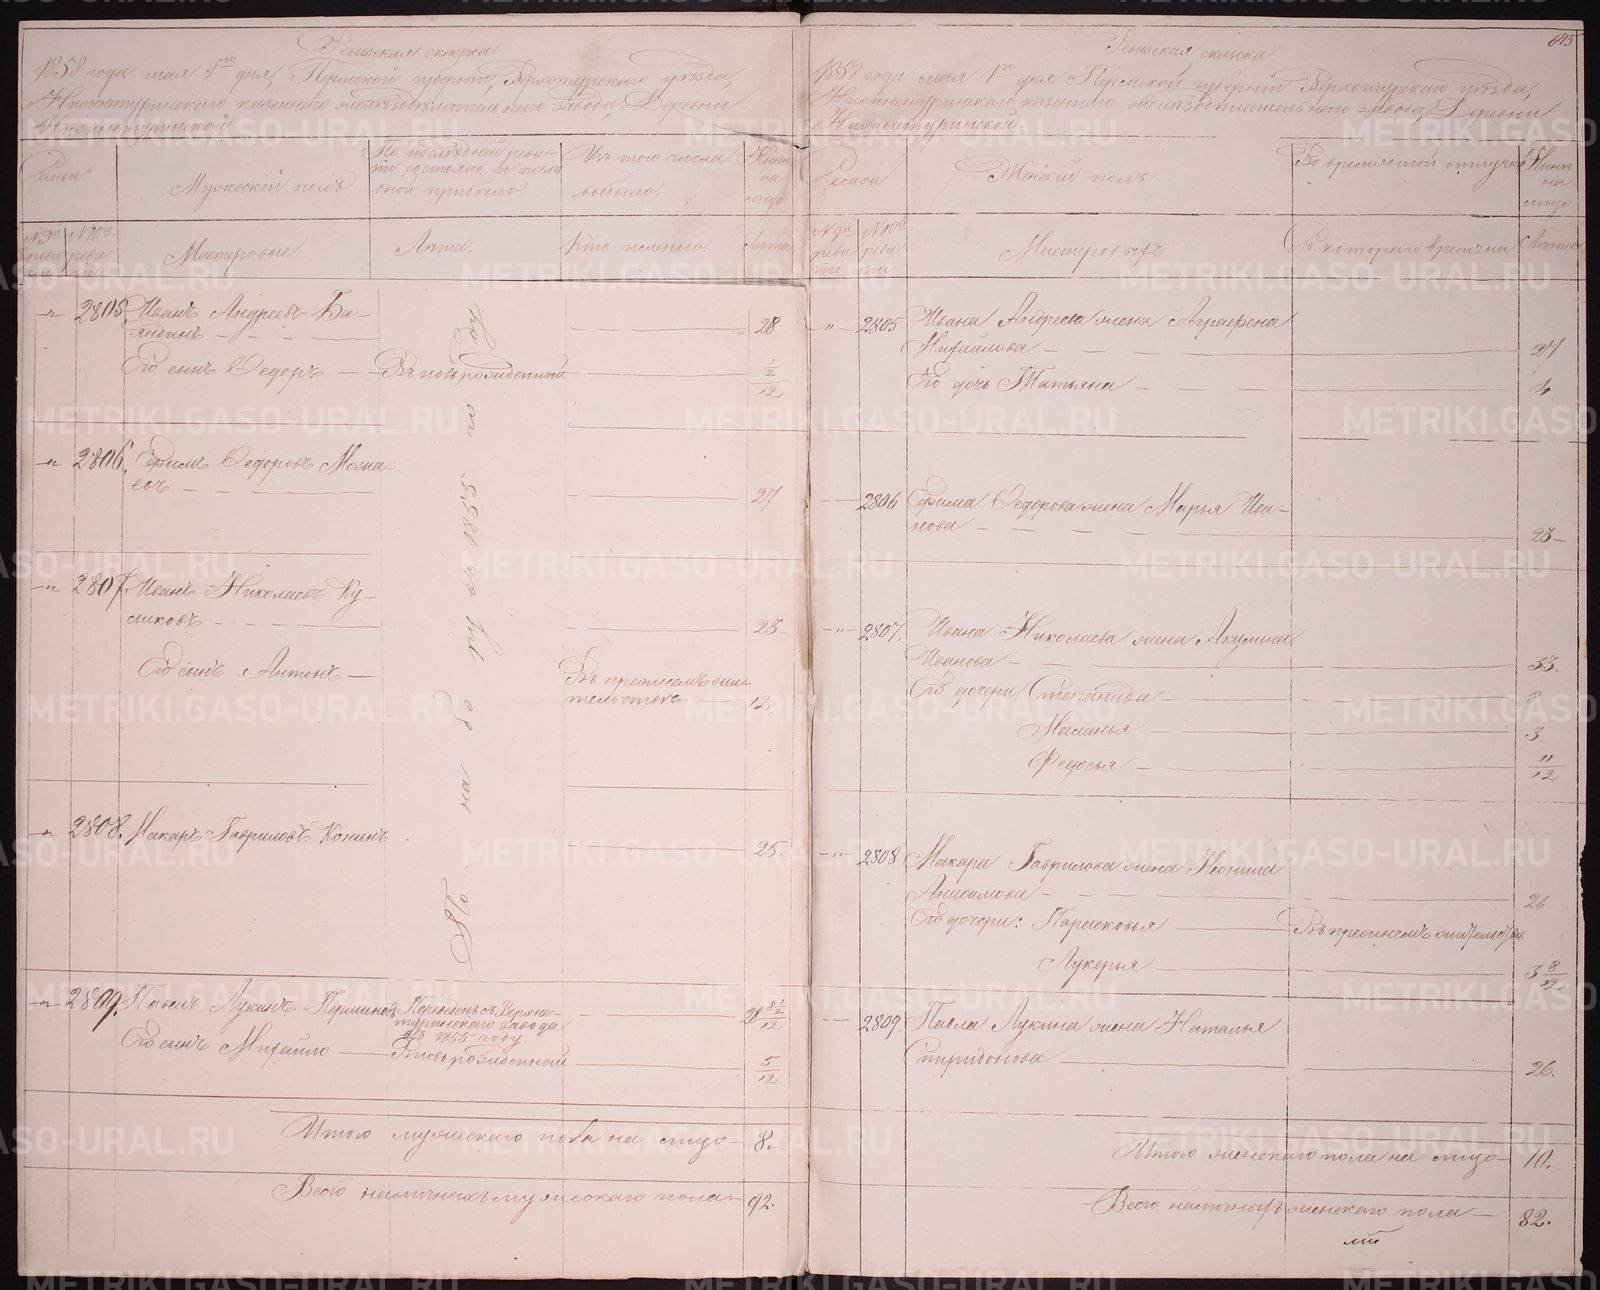 Ревизская сказка
1858 года мая 1го дня, Пермской губернии, Верхотурского уезда,
Нижнетуринского казенного железоделательного завода, Деревни
Нижнетуринской
Семьи
Мужеский полъ
По последней реви-
зіи состояло и после
оной прибыло
Изъ того числа
выбыло
Ныне
на
лицо
№ 9й
реви
зіи
№ 10й
реви
зіи
Мастеровые
Лета.
Кто именно
Лета
По ревизіи на до куда 1855 го
" 2805. Иванъ Андреевъ Ба-
28
Его сынъ Федоръ — Вновь рожденный 1/2/12
" 2806. Ефимъ Федоровъ Мама-
евъ 27
" 2807. Иванъ Николаевъ Ку-
ликовъ 23
Его сынъ Антонъ — Въ прежнемъ жи-
тельстве. 12
" 2808. Макаръ Гавриловъ Конинъ 25.
" 2809. Павелъ Лукинъ Перминовъ Переведенъ съ Верхне-
туринского завода
въ 1855 году. 28
Его сынъ Михайло — Вновь рожденной 5/12
Итого мужескаго пола на лицо — 8.
Всего наличныхъ мужескаго пола — 92.
645
Ревизская сказка
1858 года мая 1го дня Пермской губерніи Верхотурскаго уезда,
Нижнетуринскаго казеннаго железоделательного завода, Деревни
Нижнетуринской.
Семьи
Женскій полъ
Во временной отлучке
Ныне
на
лицо
№ 9й
реви
зіи
№ 10й
реви
зіи
Мастеровыхъ
Съ котораго времени
Лета
" 2805 Ивана Андреева жена Аграфена
Михайлова 27
Его дочь Татьяна 4
2806 Ефима Федорова жена Марья Ива-
нова 23
" 2807. Ивана Николаева жена Акулина
Иванова 33.
Его дочери Степанида 8
Маланья 3
Федосья 11/12
" 2808 Макара Гаврилова жена Неонила
Анисимова 26
Его дочери: Парасковья — Въ прежнемъ жительстве
Лукерья 3 8/12
2809. Павла Лукина жена Наталья
Спиридонова 26.
Итого женскаго пола на лицо — 10.
Всего наличныхъ женскаго пола — 82.
METRIKI.GASO-URAL.RU